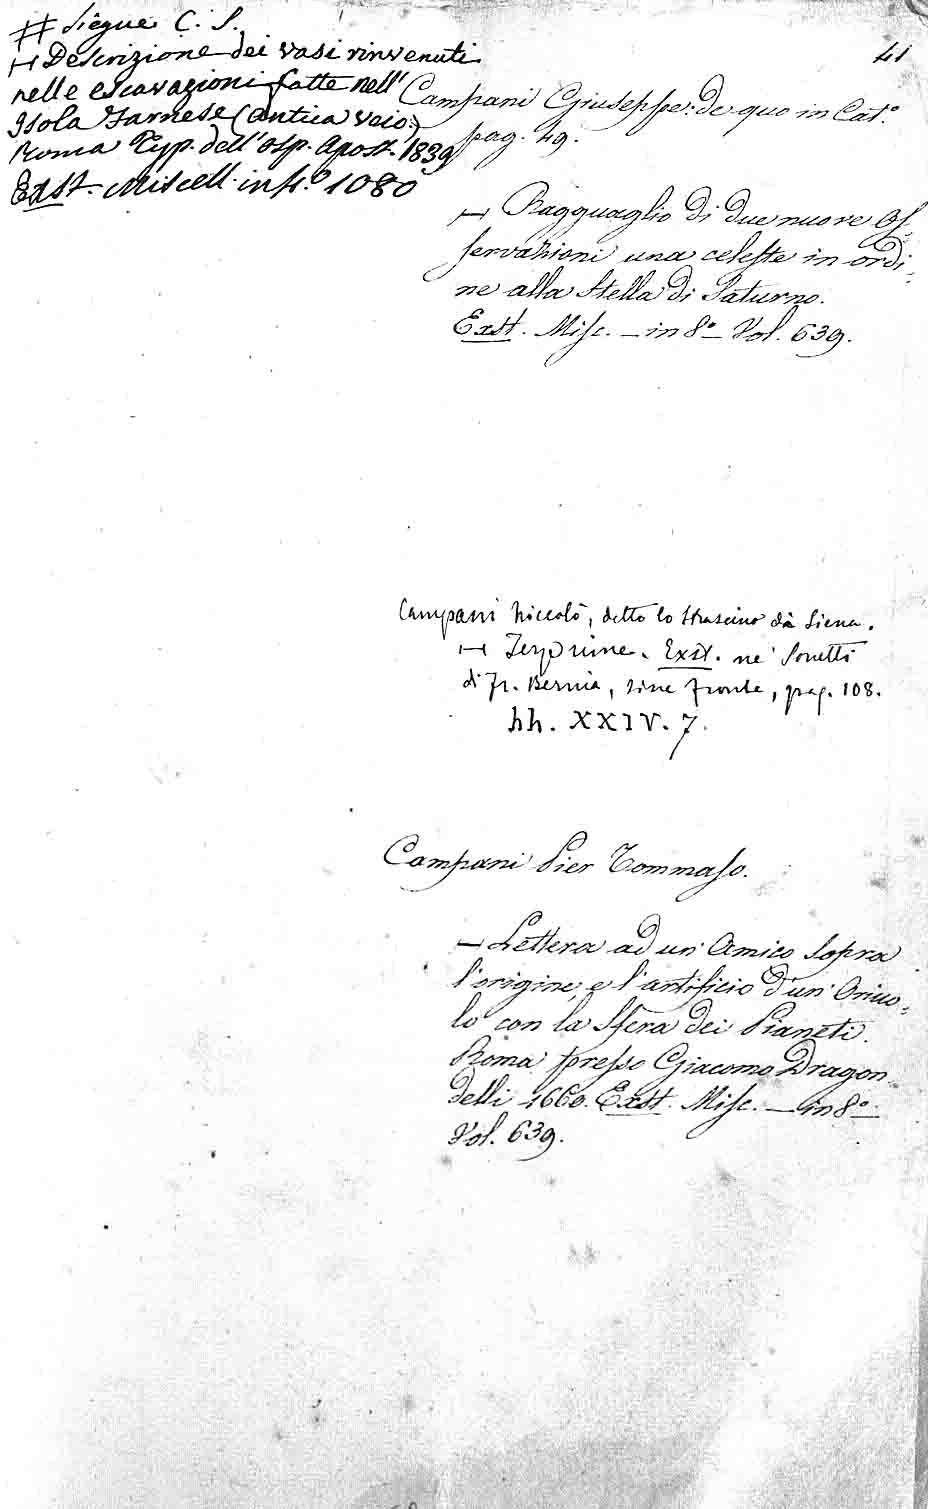 # Siegue C. S.
⊢ Descrizione dei vasi rinvenuti
nelle escavazioni fatte nell'
Isola Farnese (antica veio.)
Roma Typ. dell'osp. Apost. 1839
Exst. Miscell. in f.º 1080
41
Campani Giuseppe: de quo in Cat.º
pag. 49.
⊢ Ragguaglio di due nuove Os-
servazioni una celeste in ordi-
ne alla Stella di Saturno.
Exst. Misc. – in 8º – Vol. 639.
Campani Niccolò, detto lo Strascino da Siena.
⊢ Terze rime. Exst. ne' Sonetti
di Fr. Bernia, sine fronte, pag. 108.
hh. XXIV. 7.
Campani Pier Tommaso.
– Lettera ad un' Amico Sopra
l'origine, e l'artificio d'un' Oriuo-
lo con la Sfera dei Pianeti.
Roma presso Giacomo Dragon-
delli 1660. Exst. Misc. – in 8º –
Vol. 639.